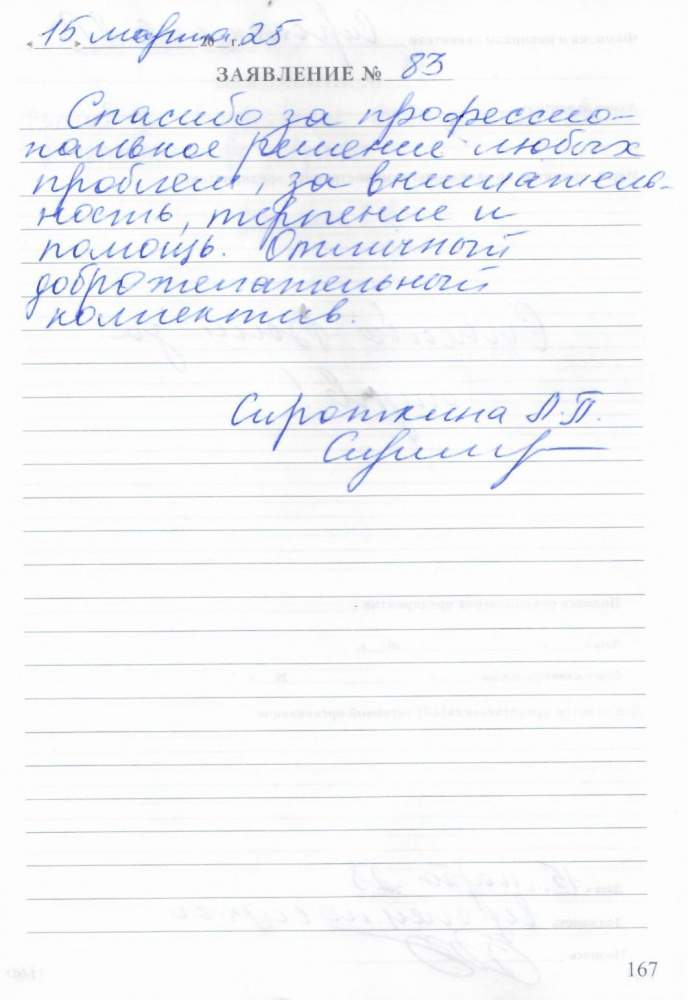 «15» марта 20 г. 25
ЗАЯВЛЕНИЕ № 83
Спасибо за профессио-
нальное решение любых
проблем, за вниматель-
ность, терпение и
помощь. Отличный
доброжелательный
коллектив.
Сироткина Л.П.
167